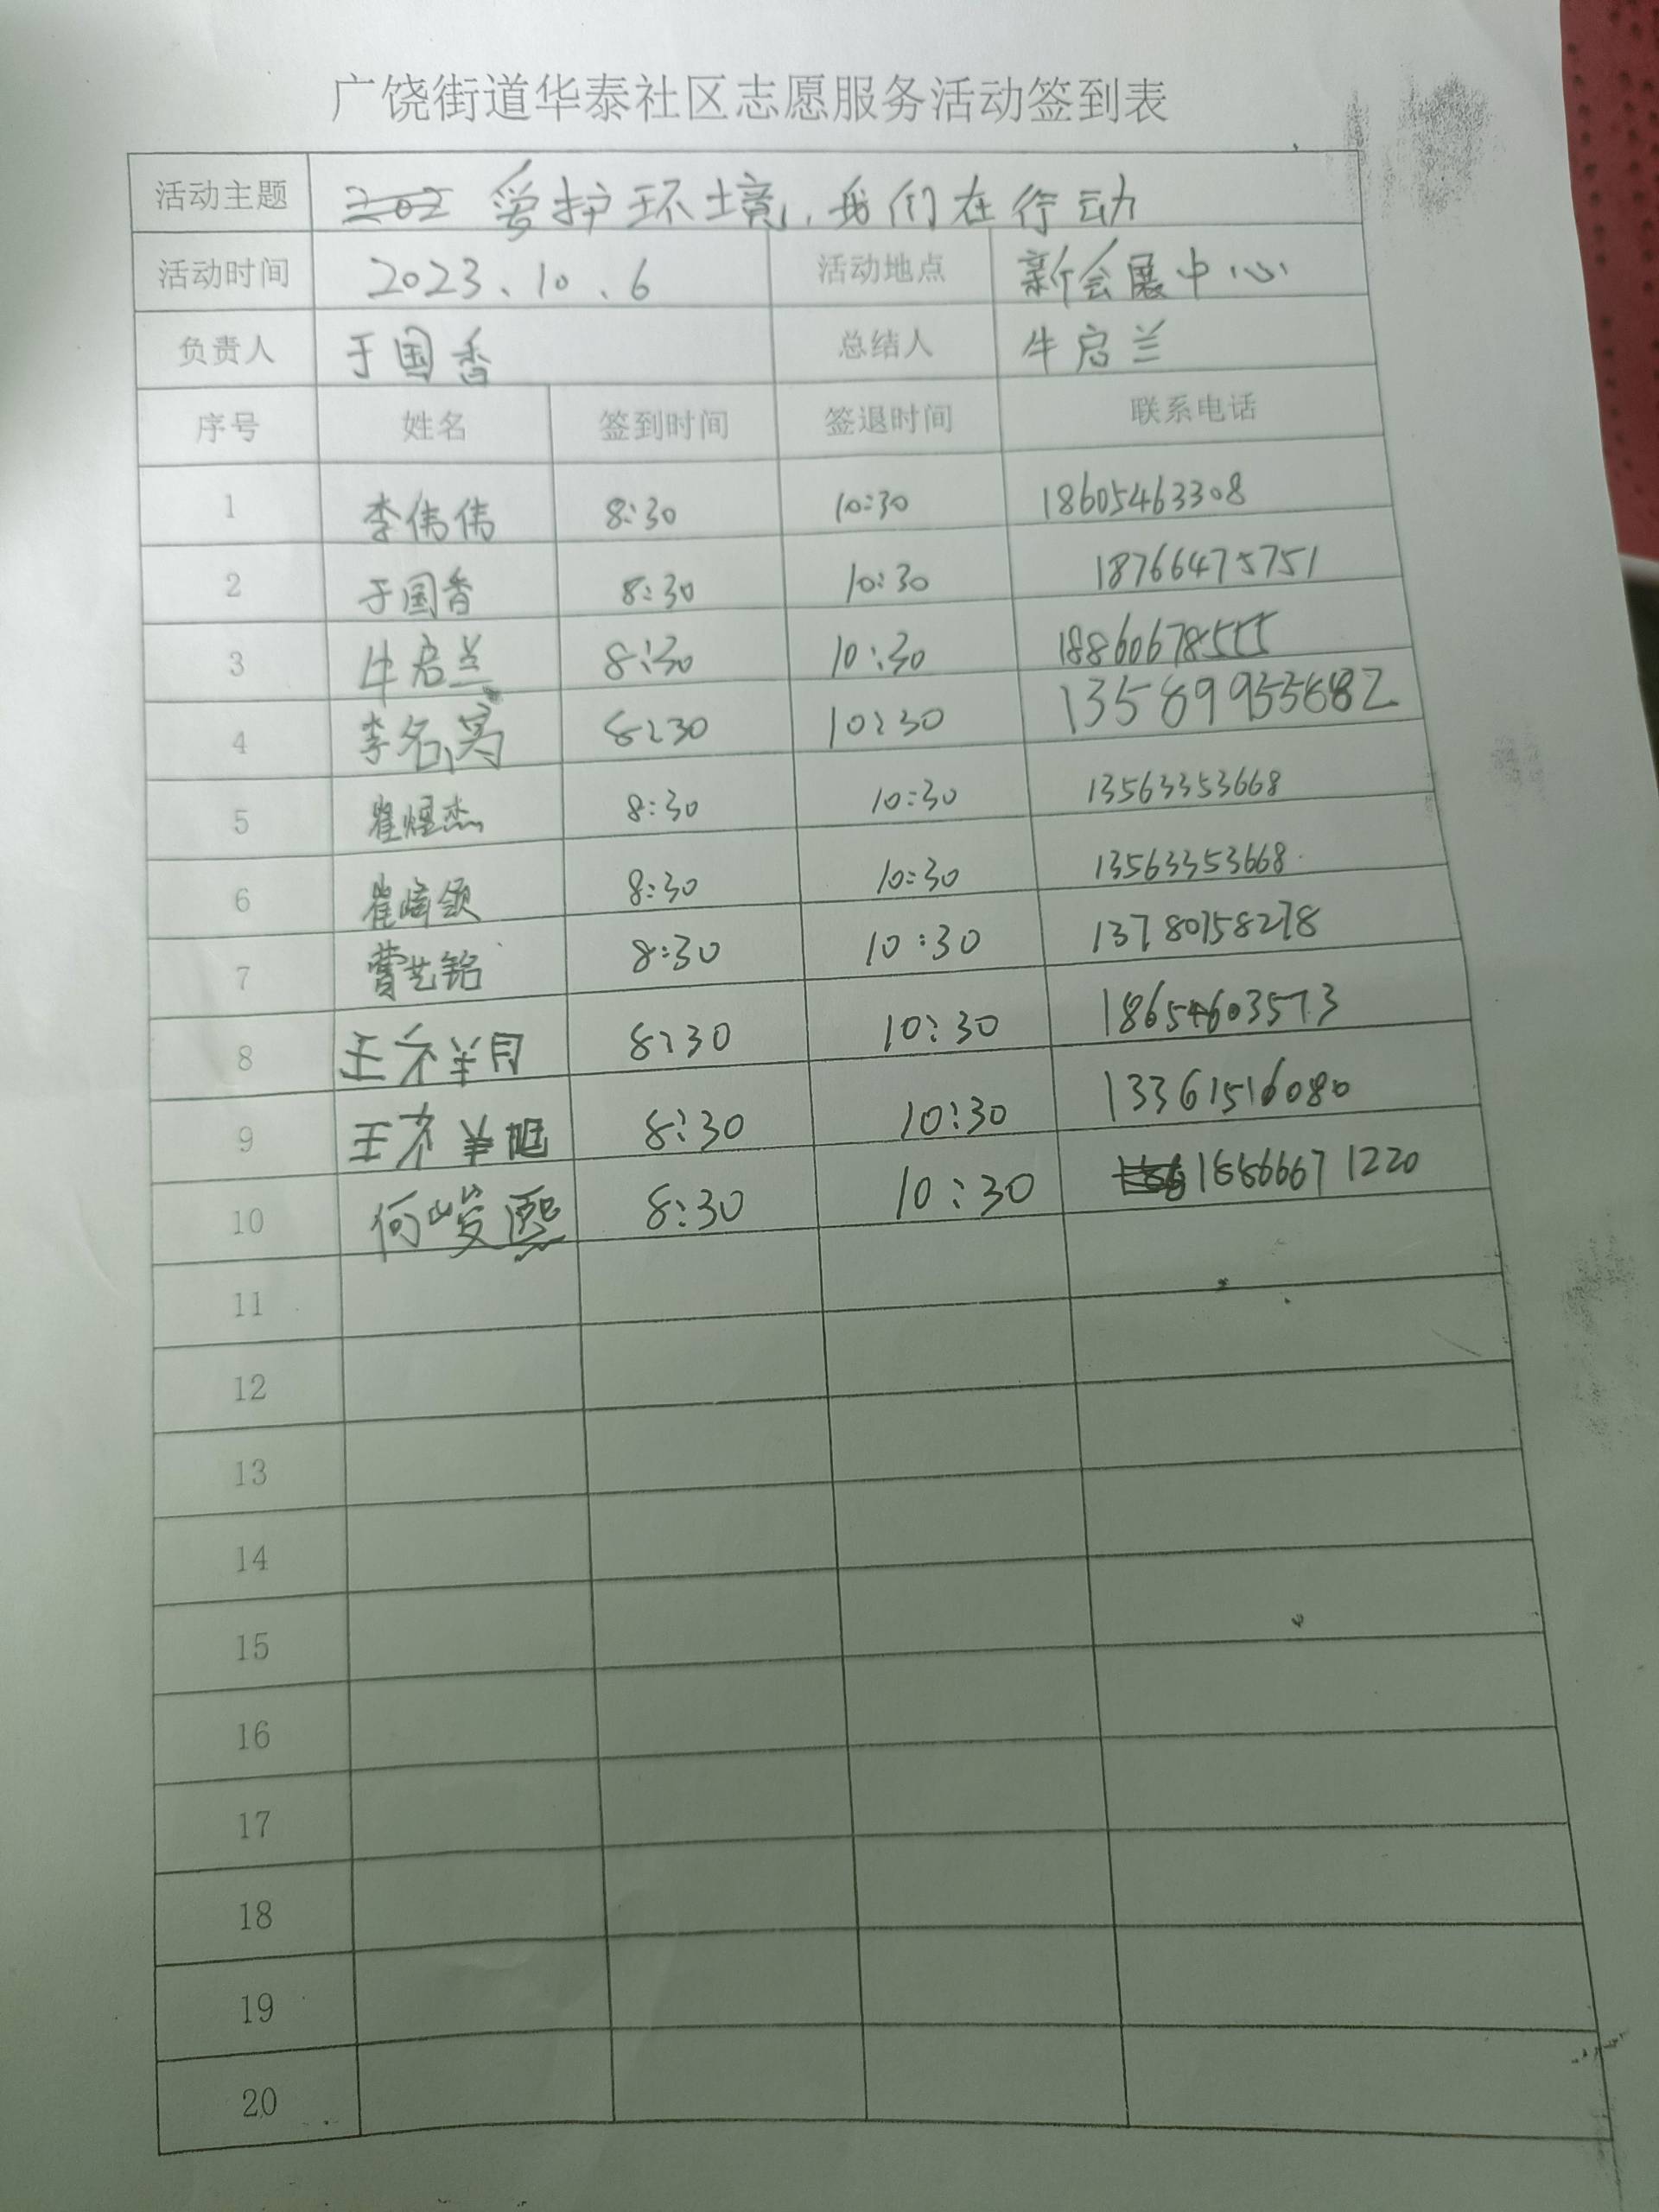 广饶街道华泰社区志愿服务活动签到表
活动主题 爱护环境,我们在行动
活动时间 2023、10、6 活动地点 新会展中心
负责人 于国香 总结人 牛启兰
序号 姓名 签到时间 签退时间 联系电话
1 李伟伟 8:30 10:30 18605463308
2 于国香 8:30 10:30 18766475751
3 牛启兰 8:30 10:30 18860678555
4 8:30 10:30 13589955682
5 崔煜杰 8:30 10:30 13563353668
6 8:30 10:30 13563353668
7 8:30 10:30 13780758278
8 8:30 10:30 18654603573
9 8:30 10:30 13361516080
10 何峻熙 8:30 10:30 18866671220
11
12
13
14
15
16
17
18
19
20